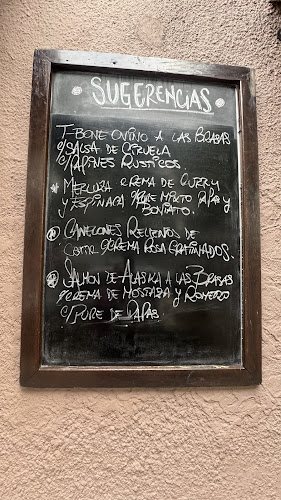 SUGERENCIAS
T-BONE OVINO A LAS BRASAS
C/SALSA DE CIRUELA
C/PAPINES RUSTICOS.
MERLUZA CREMA DE CURRY
Y ESPINACA C/PURE MIXTO PAPA Y
BONIATO.
CANELONES RELLENOS DE
C/CREMA ROSA GRATINADOS.
SALMON DE ALASKA A LAS BRASAS
C/CREMA DE MOSTAZA Y ROMERO
C/PURE DE PAPAS